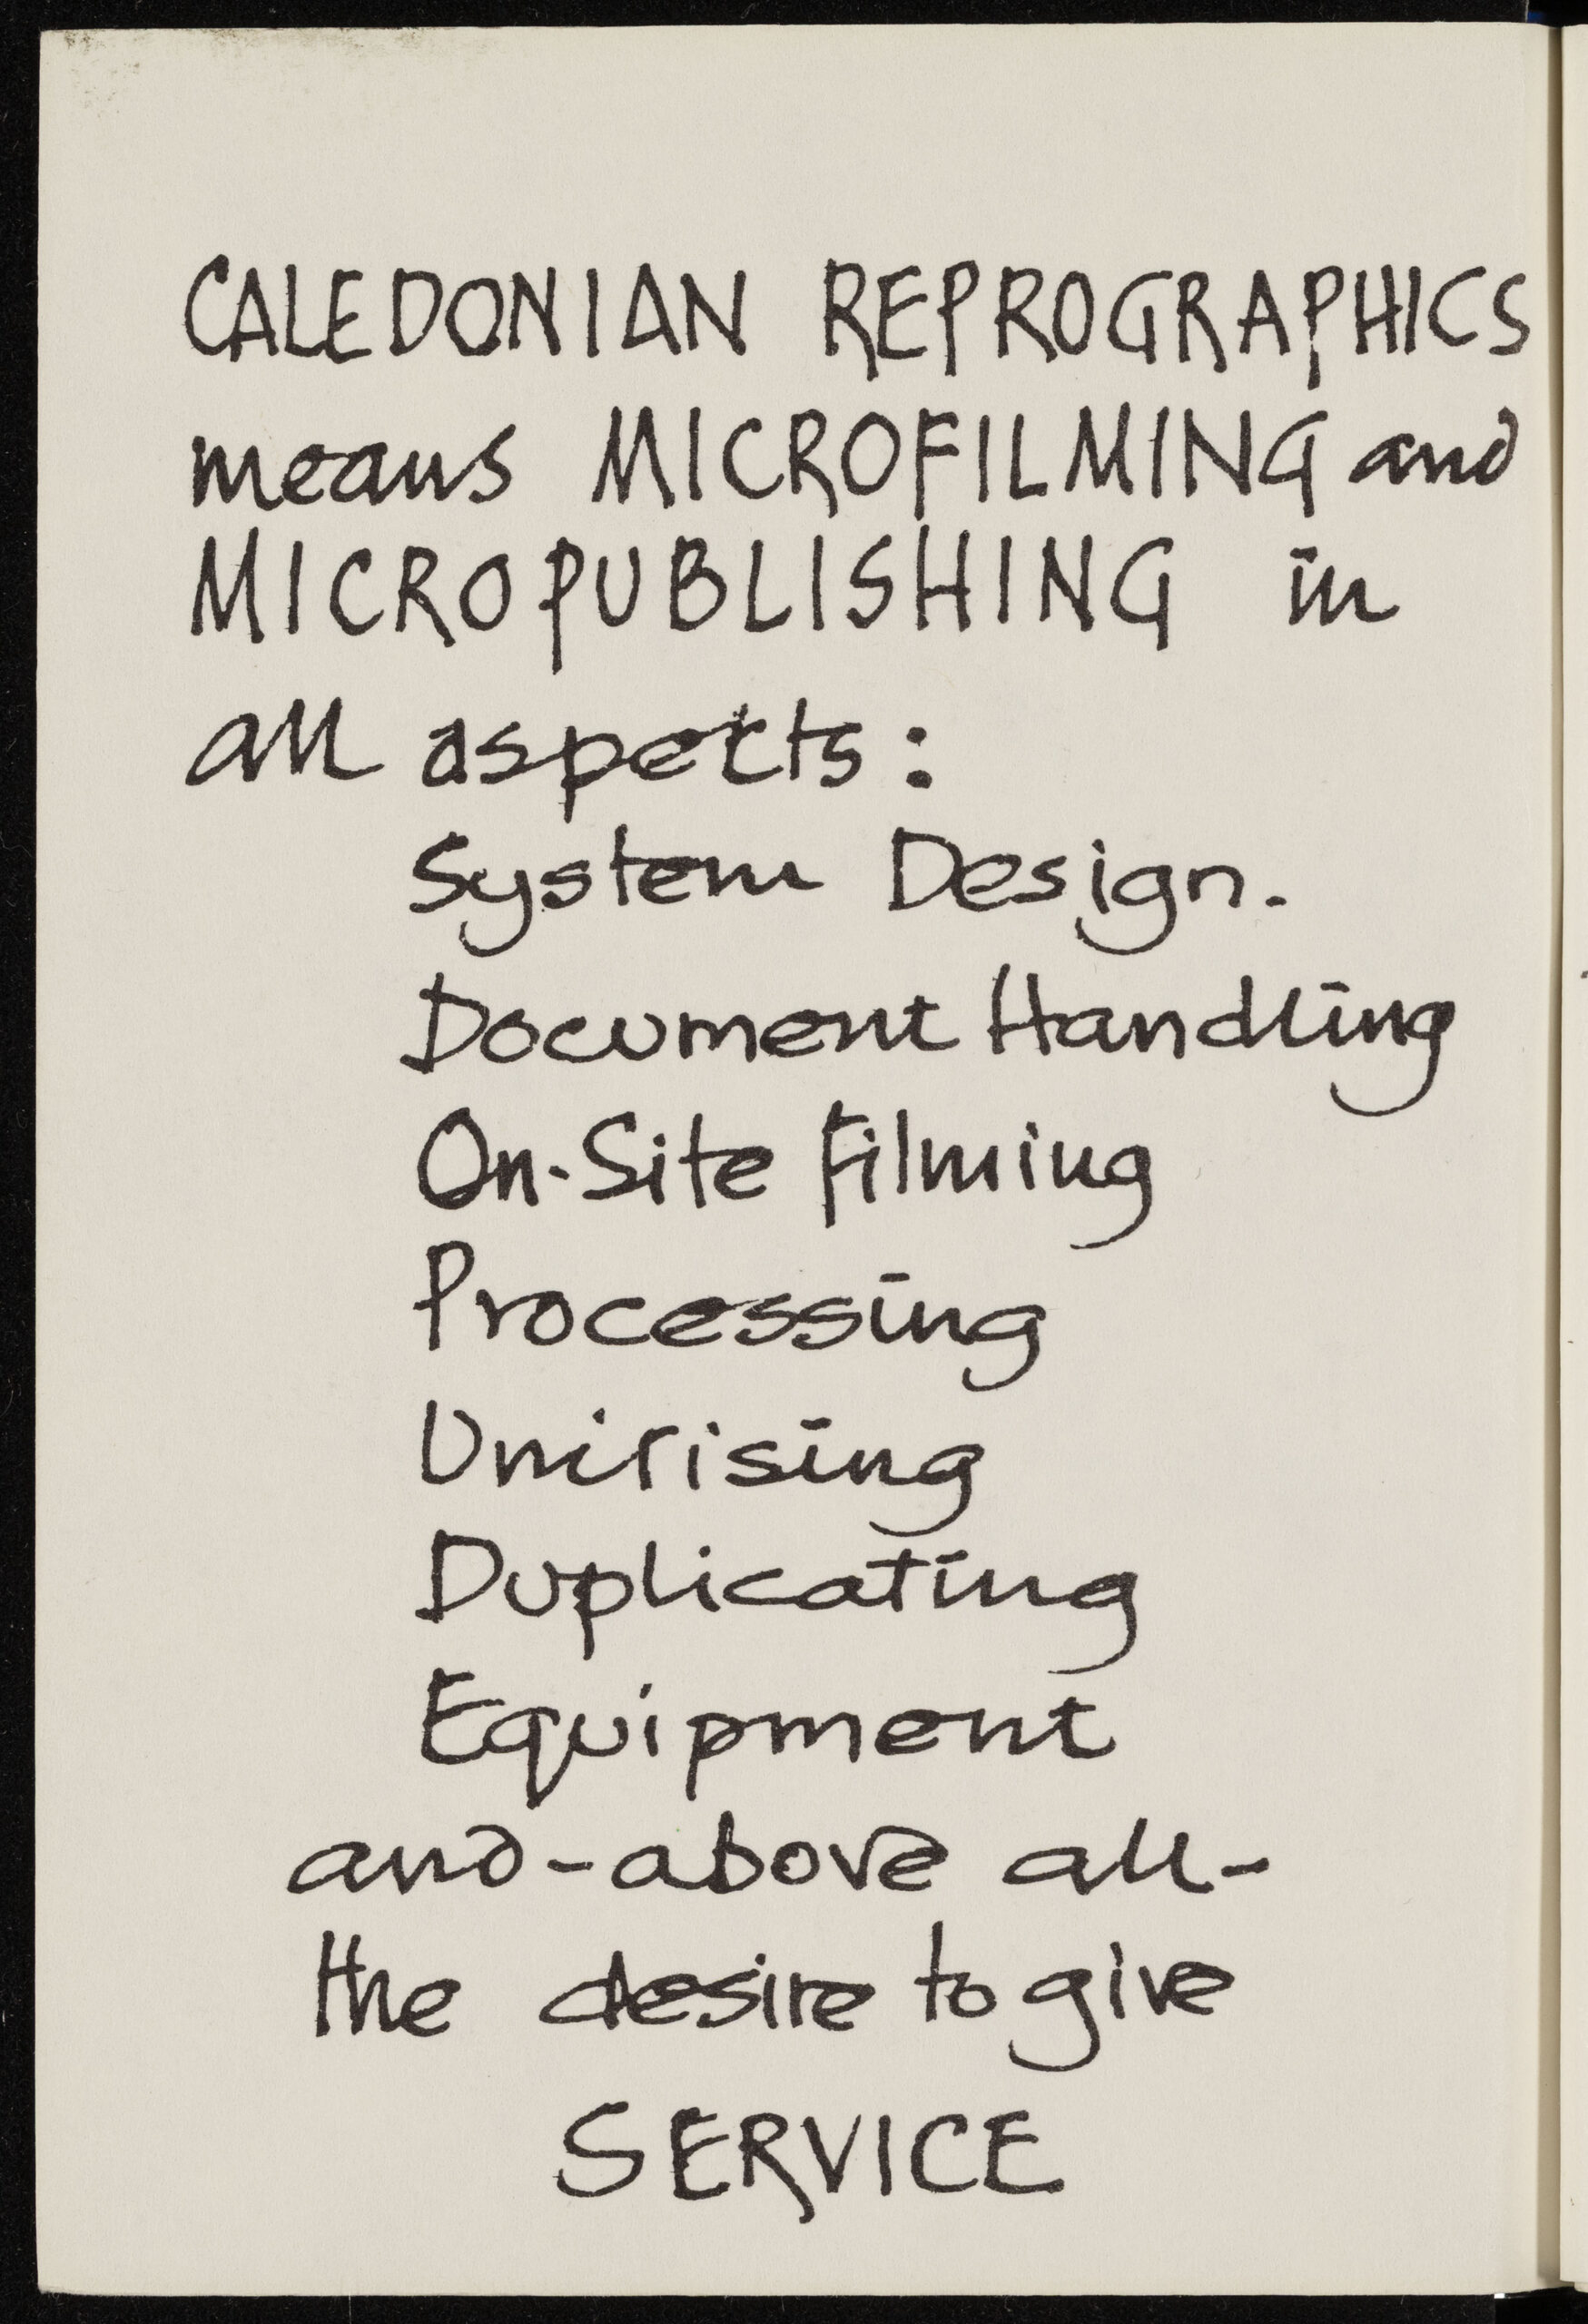 CALEDONIAN REPROGRAPHICS
means MICROFILMING and
MICROPUBLISHING in
all aspects:
System Design.
Document Handling
On-Site Filming
Processing
Unitising
Duplicating
Equipment
and - above all -
the desire to give
SERVICE